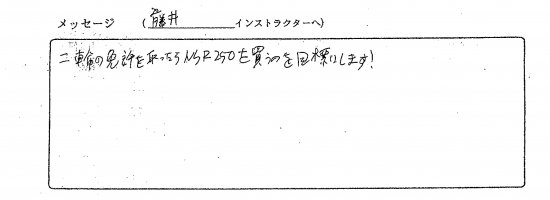 メッセージ （藤井 インストラクターへ）
二輪の免許を取ったらNSR250を買うのを目標にします！